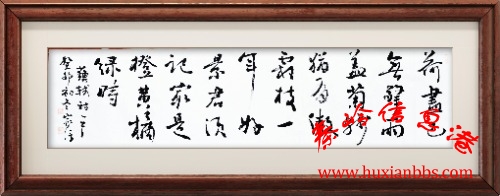 荷盡已
無擎雨
蓋菊殘
猶有傲
霜枝一
年好
景君須
記最是
橙黄橘
綠時
蘇軾詩一首
信息港
www.huxianbbs.com